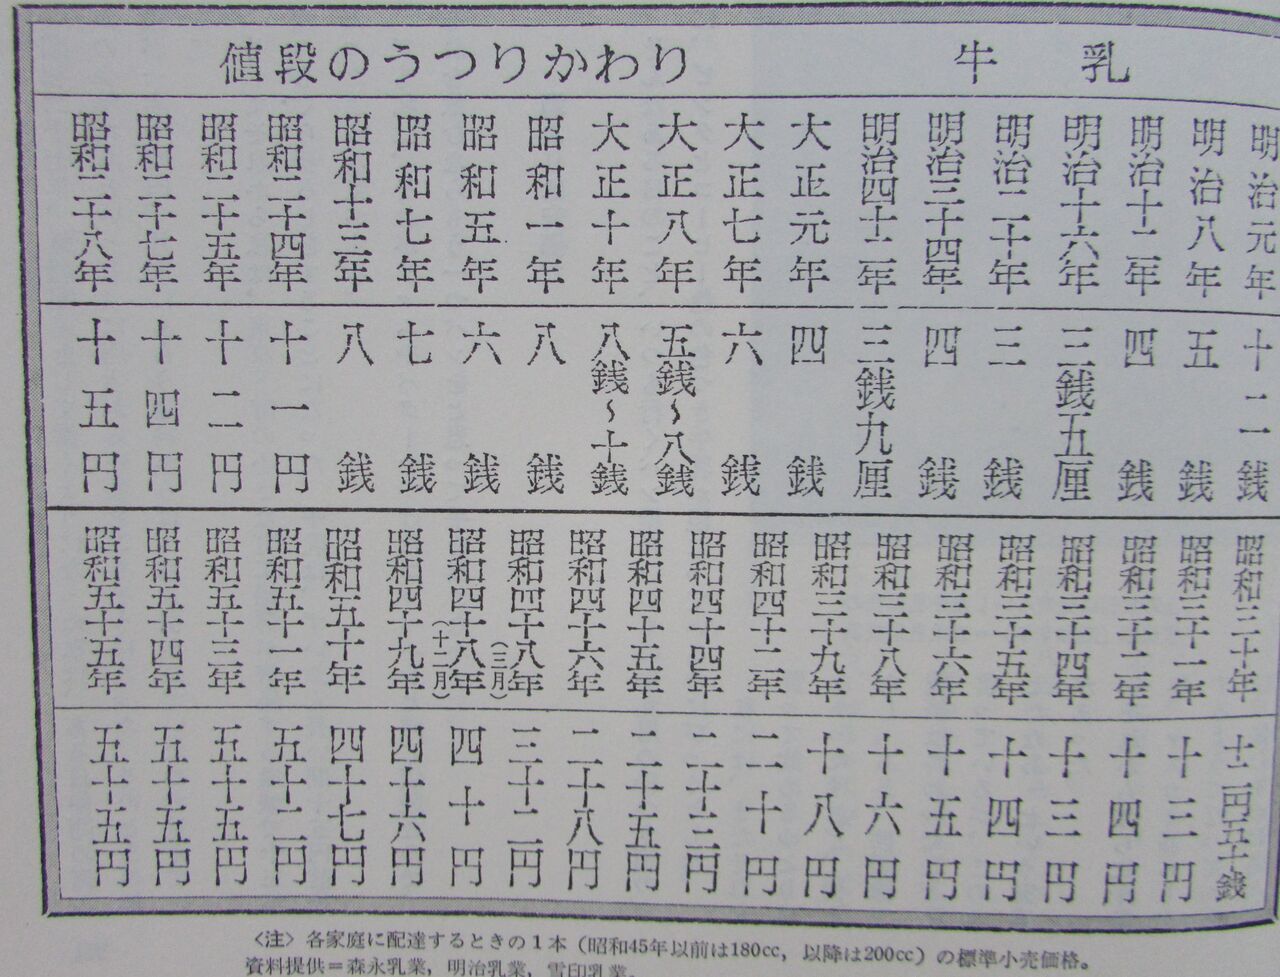 牛乳 値段のうつりかわり
明治元年 十二銭
明治八年 五銭
明治十二年 四銭
明治十六年 三銭五厘
明治二十年 三銭
明治三十四年 四銭
明治四十二年 三銭九厘
大正元年 四銭
大正七年 六銭
大正八年 五銭〜八銭
大正十年 八銭〜十銭
昭和一年 八銭
昭和五年 六銭
昭和七年 七銭
昭和十三年 八銭
昭和二十四年 十一円
昭和二十五年 十二円
昭和二十七年 十四円
昭和二十八年 十五円
昭和三十年 十二円五十銭
昭和三十一年 十三円
昭和三十二年 十四円
昭和三十四年 十三円
昭和三十五年 十四円
昭和三十六年 十五円
昭和三十八年 十六円
昭和三十九年 十八円
昭和四十二年 二十円
昭和四十四年 二十三円
昭和四十五年 二十五円
昭和四十六年 二十八円
昭和四十八年(三月) 三十二円
昭和四十八年(十二月) 四十円
昭和四十九年 四十六円
昭和五十年 四十七円
昭和五十一年 五十二円
昭和五十三年 五十五円
昭和五十四年 五十五円
昭和五十五年 五十五円
〈注〉各家庭に配達するときの1本(昭和45年以前は180cc,以降は200cc)の標準小売価格。
資料提供=森永乳業,明治乳業,雪印乳業。